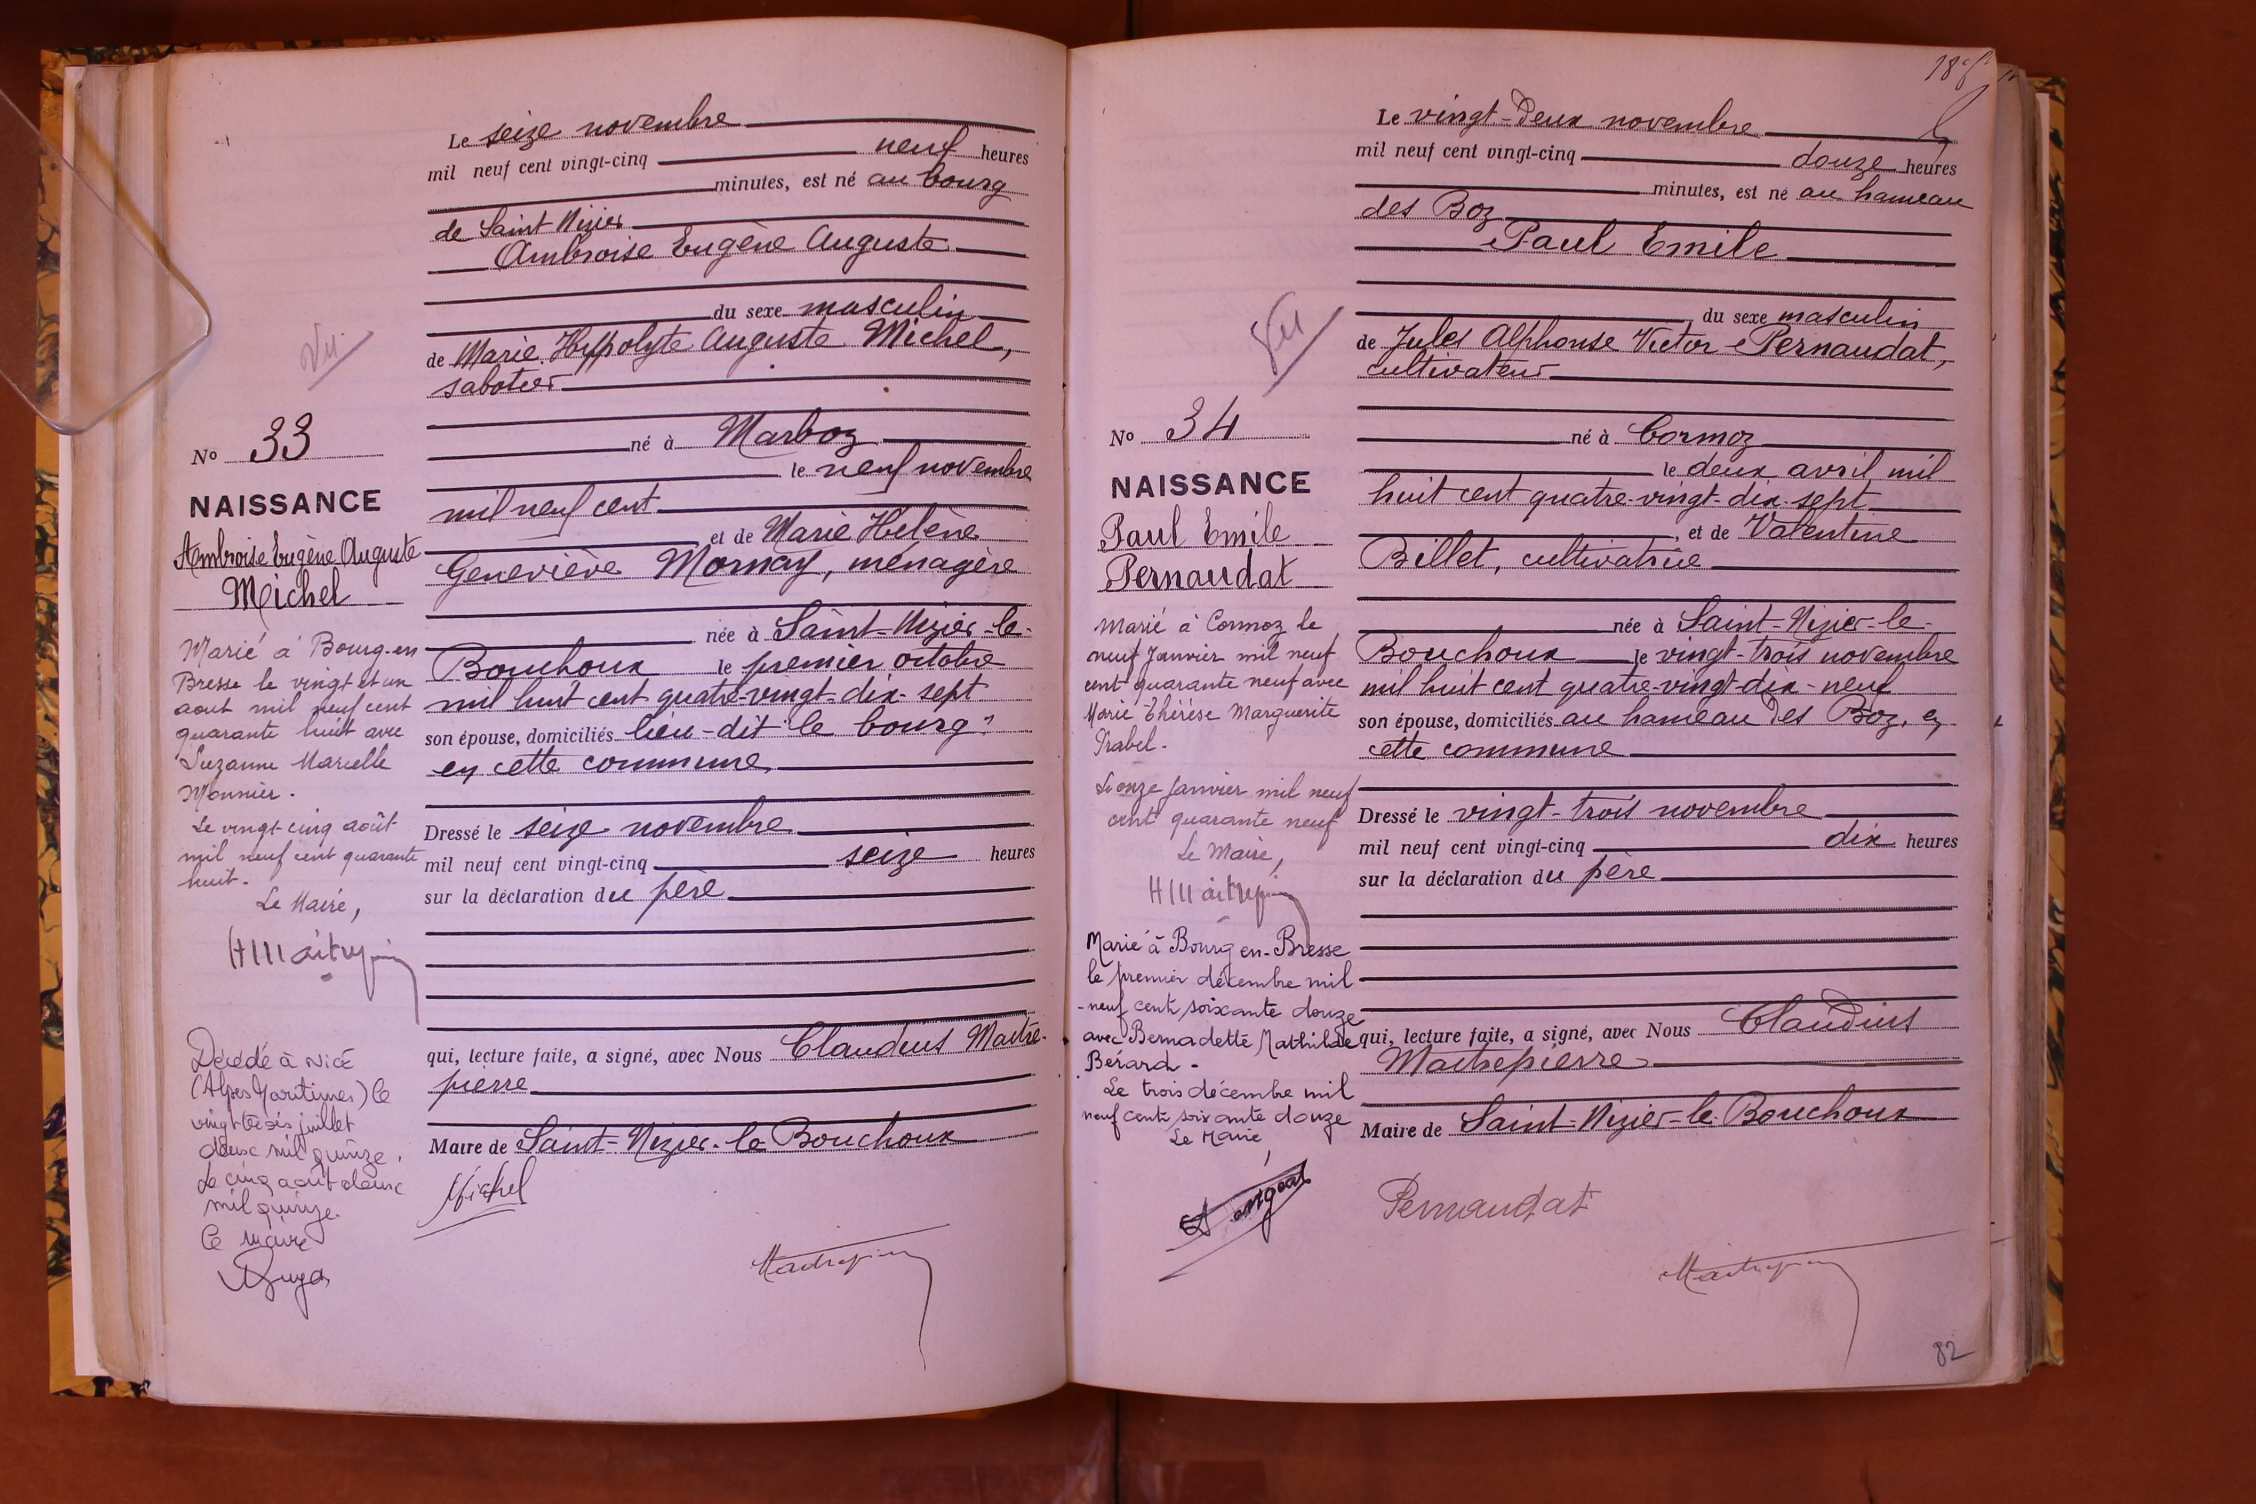 Vu
No 33
NAISSANCE
Ambroise Eugène Auguste
Michel
Marié à Bourg-en
Bresse le vingt et un
aout mil neuf cent
quarante huit avec
Suzanne Marcelle
Monnier.
Le vingt-cinq août
mil neuf cent quarante
huit.
Le Maire,
HMaitrepierre
Décédé à Nice
(Alpes Maritimes) le
vingt trois juillet
deux mil quinze.
Le cinq août deux
mil quinze.
Le maire
Le seize novembre
mil neuf cent vingt-cinq neuf heures
minutes, est né au bourg
de Saint Nizier
Ambroise Eugène Auguste
du sexe masculin
de Marie Hyppolyte Auguste Michel,
sabotier
né à Marboz
le neuf novembre
mil neuf cent
et de Marie Helène
Geneviève Mornay, ménagère
née à Saint-Nizier-le-
Bouchoux le premier octobre
mil huit cent quatre-vingt-dix-sept
son épouse, domiciliés lieu-dit le bourg
en cette commune,
Dressé le seize novembre
mil neuf cent vingt-cinq seize heures
sur la déclaration du père
qui, lecture faite, a signé, avec Nous Claudius Maitre-
pierre
Maire de Saint-Nizier-le-Bouchoux
Michel
Maitrepierre
Vu
No 34
NAISSANCE
Paul Emile
Pernaudat
Marié à Cormoz le
neuf Janvier mil neuf
cent quarante neuf avec
Marie Thérèse Marguerite
Prabel.
Le onze Janvier mil neuf
cent quarante neuf
Le Maire,
HMaitrepierre
Marié à Bourg en-Bresse
le premier décembre mil
-neuf cent soixante douze
avec Bernadette Mathilde
Bérard-
Le trois décembre mil
neuf cent soixante douze
Le Maire,
Le vingt-deux novembre
mil neuf cent vingt-cinq douze heures
minutes, est né au hameau
des Boz
Paul Emile
du sexe masculin
de Jules Alphonse Victor Pernaudat,
cultivateur
né à Cormoz
le deux avril mil
huit cent quatre-vingt-dix-sept
, et de Valentine
Billet, cultivatrice
née à Saint-Nizier-le-
Bouchoux le vingt-trois novembre
mil huit cent quatre-vingt-dix-neuf
son épouse, domiciliés au hameau des Boz, en
cette commune
Dressé le vingt-trois novembre
mil neuf cent vingt-cinq dix heures
sur la déclaration du père
qui, lecture faite, a signé, avec Nous Claudius
Maitrepierre
Maire de Saint-Nizier-le-Bouchoux
Pernaudat
Maitrepierre
82